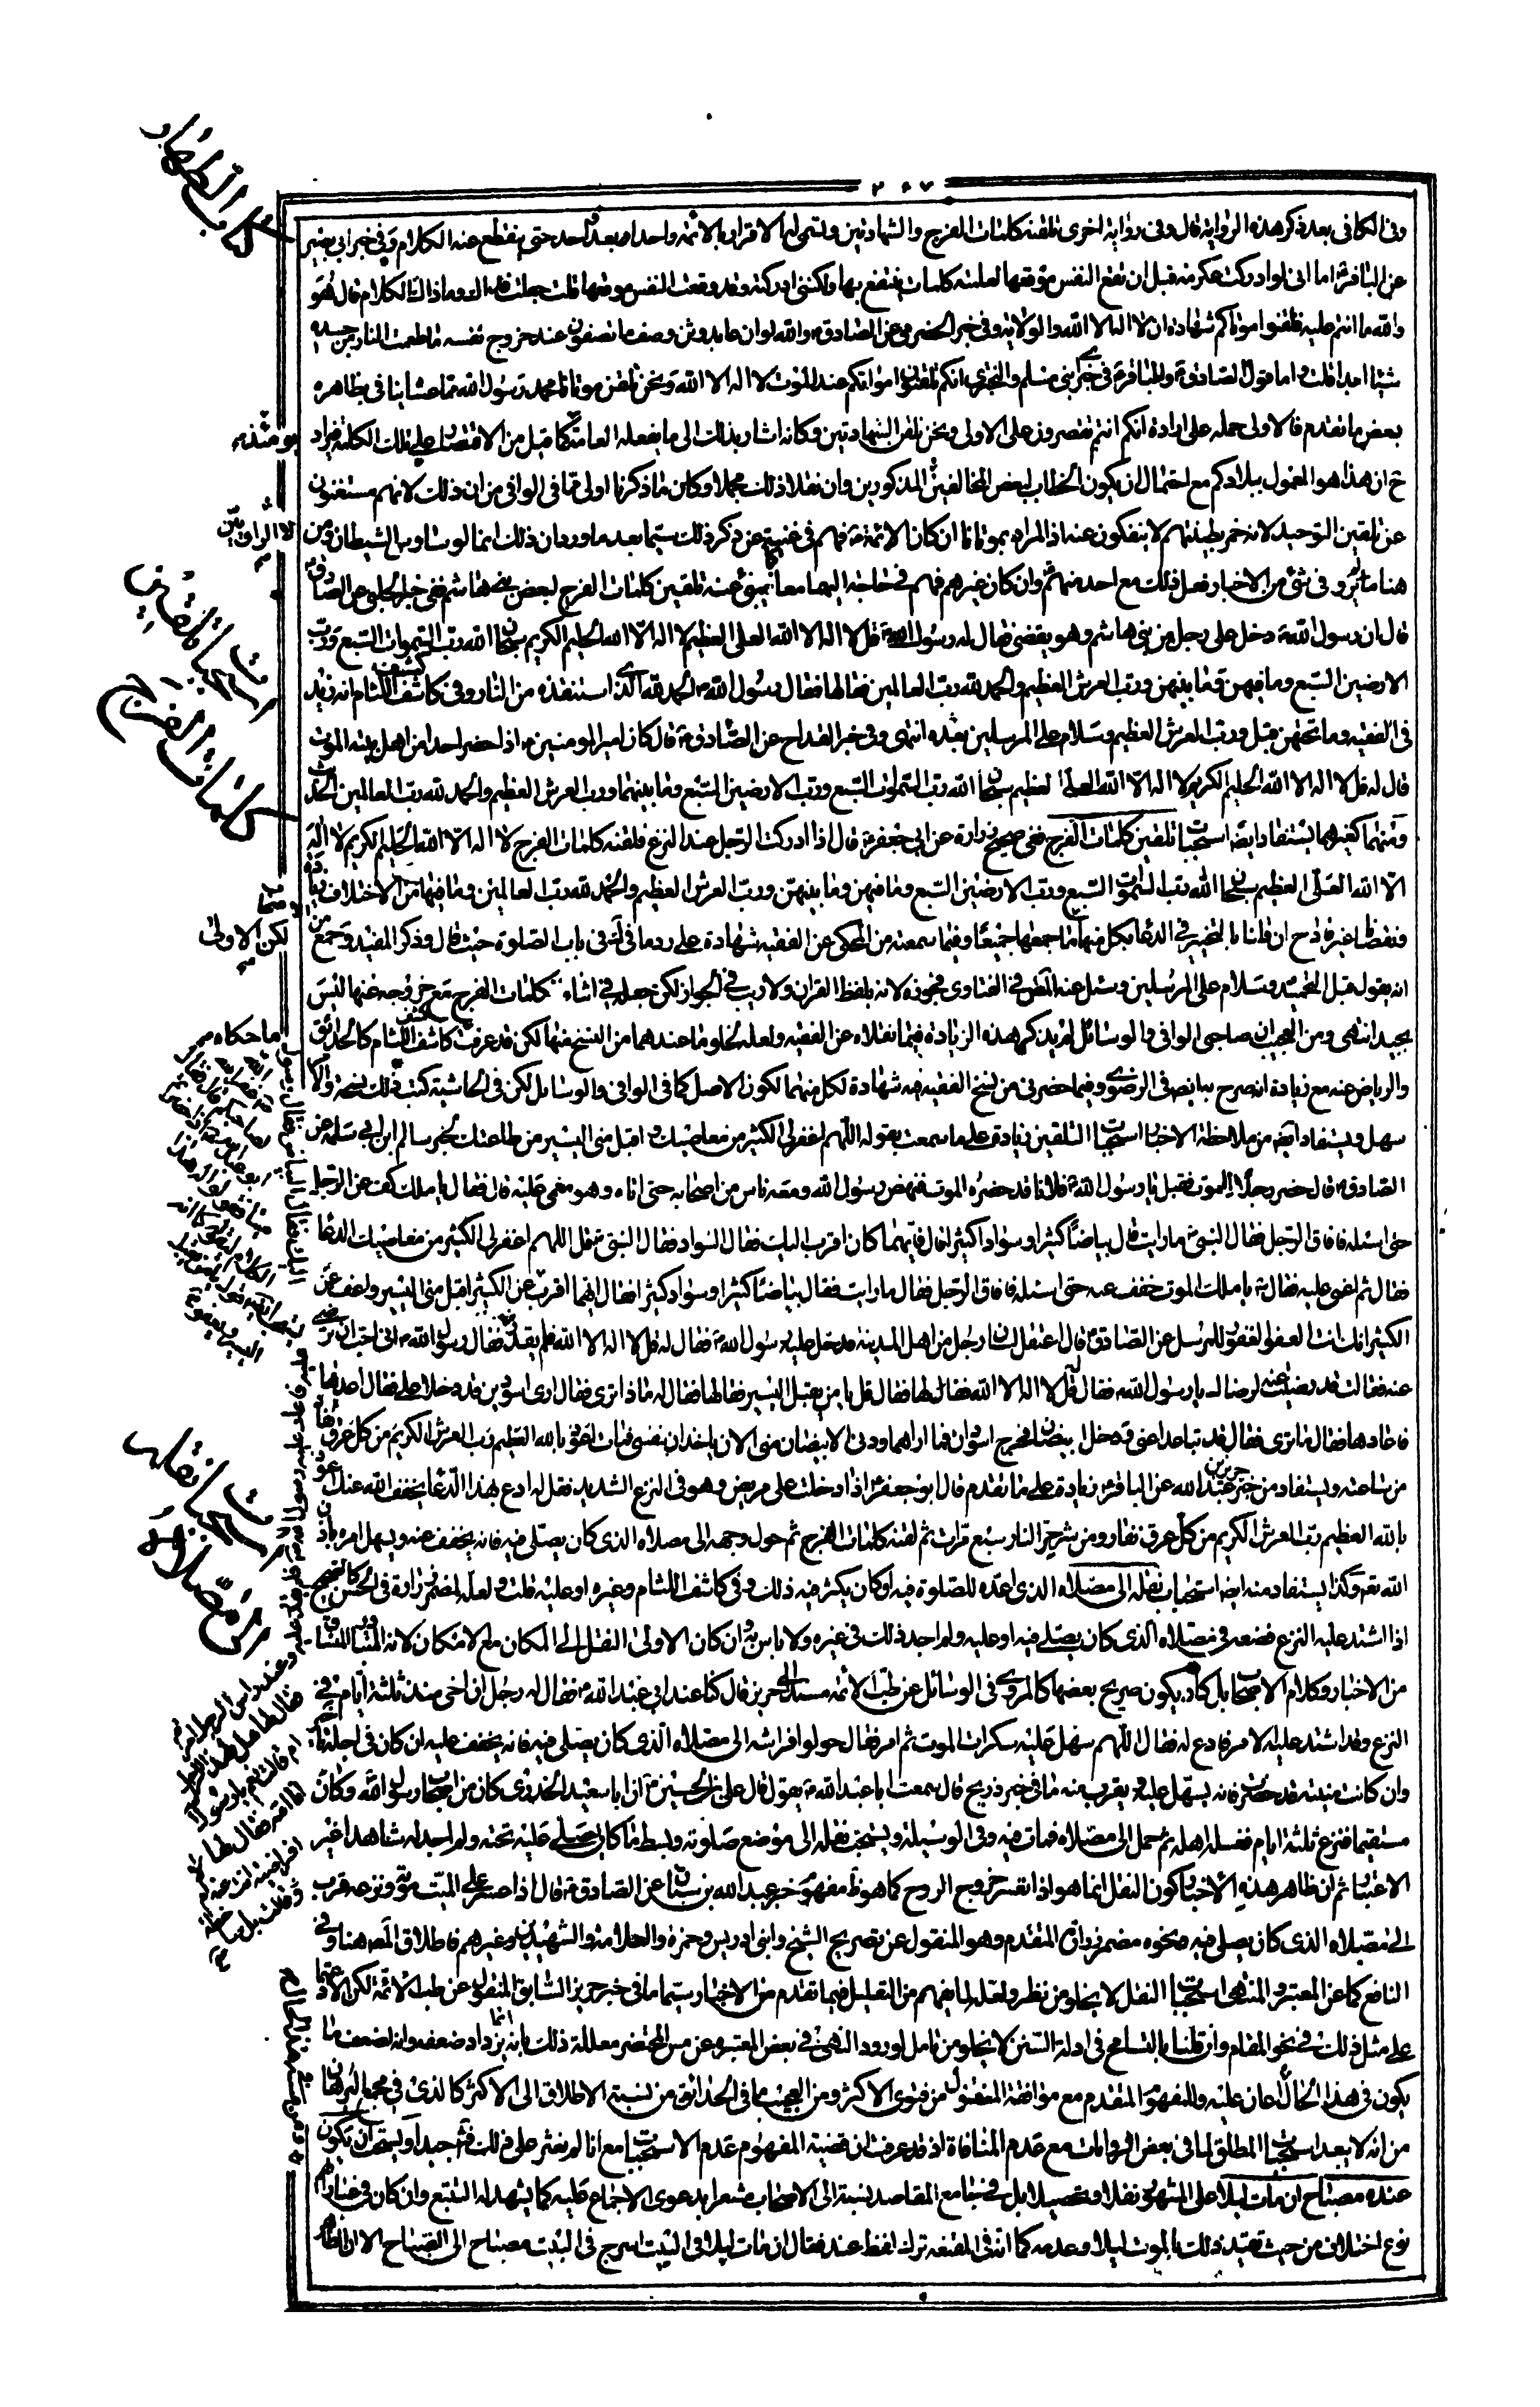 ٢٠٧
كتاب الطهارة
وفي الكافي بعد ذكر هذه الرواية قال وفي رواية اخرى تلقنه كلمات الفرج والشهادتين وتسمى له الاقرار بالائمة واحدا بعد واحد حتى ينقطع عنه الكلام وفي خبر ابي بصير
عن الباقر اما اني لو ادركت عكرمة قبل ان تقع النفس موقعها لعلمته كلمات ينتفع بها ولكنني ادركته وقد وقعت النفس موقعها قلت جعلت فداك وما ذاك الكلام قال هو
والله ما انتم عليه فلقنوا موتاكم شهادة ان لا اله الا الله والولاية وفي خبر الحضرمي عن الصادق والله لو ان عابد وثن وصف ما تصفون عند خروج نفسه ما طعمت النار من جسده
شيئا ابدا قلت اما قول الصادق والباقر في خبري بن مسلم والبختري انكم تلقنون امواتكم عند الموت لا اله الا الله ونحن نلقن موتانا محمد رسول الله فما عثرنا في ظاهره
بعض ما تقدم فالاولى حمله على ارادة انكم انتم تقتصرون على الاولى ونحن نلقن الشهادتين وكانه اشار بذلك الى ما يفعله العامة كما قيل من الاقتصار على تلك الكلمة
ان هذا هو المعمول ببلادكم مع احتمال ان يكون الخطاب لبعض المخالفين المذكورين وان نقلا ذلك مجملا وكان ما ذكرنا اولى مما في الوافي من ان ذلك لانهم مستغنون
عن تلقين التوحيد لانه خمر بطينتهم لا ينفكون عنه اذ المراد بموتانا ان كان الائمة فهم في غنية عن ذكر ذلك سيما بعد ما ورد ان ذلك انما لوساوس الشيطان ومن
هنا ما يرو في شئ من الاخبار فعل ذلك مع احد منهم وان كان غيرهم فهم في حاجة اليهما معا كما ينبئ عنه تلقين كلمات الفرج لبعض بني هاشم ففي خبر الحلبي عن الصادق
قال ان رسول الله دخل على رجل من بني هاشم وهو يقضي فقال له رسول الله قل لا اله الا الله العلي العظيم لا اله الا الله الحليم الكريم سبحان الله رب السموات السبع ورب
الارضين السبع وما فيهن وما بينهن ورب العرش العظيم والحمد لله رب العالمين فقالها فقال رسول الله الحمد لله الذي استنقذه من النار وفي كاشف اللثام انه زيد
في الفقيه وما تحتهن قبل ورب العرش العظيم وسلام على المرسلين بعده انتهى وفي خبر القداح عن الصادق قال كان امير المؤمنين اذا حضر احدا من اهل بيته الموت
قال له قل لا اله الا الله الحليم الكريم لا اله الا الله العلي العظيم سبحان الله رب السموات السبع ورب الارضين السبع وما بينهما ورب العرش العظيم والحمد لله رب العالمين الحديث
ومنهما كغيرهما يستفاد ايضا استحباب تلقين كلمات الفرج ففي صحيح زرارة عن ابي جعفر قال اذا ادركت الرجل عند النزع فلقنه كلمات الفرج لا اله الا الله الحليم الكريم لا اله
الا الله العلي العظيم سبحان الله رب السموات السبع ورب الارضين السبع وما فيهن وما بينهن ورب العرش العظيم والحمد لله رب العالمين وما فيهما من الاختلاف زيادة
ونقصانا غير قادح ان قلنا بالتخيير في الدعاء بكل منهما جمعها جميعا وفيما سمعته من المحكي عن الفقيه شهادة على رد ما في في باب الصلوة حيث قال وذكر المفيد وجمع من
انه يقول قبل التحميد وسلام على المرسلين وسئل عنه المص في الفتاوى فجوزه لانه بلفظ القران ولا ريب في الجواز لكن جعله في اثناء كلمات الفرج مع خروجه عنها ليس
بجيد انتهى ومن العجيب ان صاحبي الوافي والوسائل لم يذكر هذه الزيادة فيما نقلاه عن الفقيه ولعله لخلو ما عندهما من النسخ منها لكن قد عرفت كاشف اللثام كالحدائق
والرياض عنه مع زيادة انه صرح بها ايضا في الرضوي وفيما حضرني من نسخ الفقيه شهادة لكل منهما لكون الاصل كما في الوافي والوسائل لكن في الحاشية كتب ذلك نسخة
سهل ويستفاد ايضا من ملاحظة الاخبار استحباب التلقين زيادة على ما سمعت بقوله اللهم اغفر لي الكثير من معاصيك واقبل مني اليسير من طاعتك لخبر سالم ابن ابي سلمة عن
الصادق قال حضر رجلا الموت فقيل يا رسول الله ان فلانا قد حضره الموت فنهض رسول الله ومعه ناس من اصحابه حتى اتاه وهو مغمى عليه قال فقال يا ملك كف عن الرجل
حتى اسئله فافاق الرجل فقال النبي ما رايت قال بياضا كثيرا وسوادا كثيرا قال فايهما كان اقرب اليك فقال السواد فقال النبي قل اللهم اغفر لي الكثير من معاصيك الدعاء
فقال ثم اغمي عليه فقال يا ملك الموت خفف عنه حتى اسئله فافاق الرجل فقال ما رايت فقال بياضا كثيرا وسوادا كثيرا فقال ايهما اقرب
الكثير انك انت العفو الغفور للمرسل عن الصادق قال اعتقل لسان رجل من اهل المدينة فدخل عليه رسول الله فقال له قل لا اله الا الله فلم يقدر فقال رسول الله
عنه فقالت قد رضيت عنه لرضاك يا رسول الله فقال له قل لا اله الا الله فقالها فقال قل يا من يقبل اليسير فقالها فقال له ماذا ترى فقال ارى اسودين قد دخلا علي فقال اعدها
فاعادها فقال ما ترى فقال قد تباعدا عني ودخل ابيضان وخرج اسودان فما اراهما ودنى الابيضان مني الان ياخذان بنفسي فمات
من ساعته ويستفاد من خبر حريز بن عبد الله عن الباقر زيادة على ما تقدم قال ابو جعفر اذا دخلت على مريض وهو في النزع الشديد فقل له ادع بهذا الدعاء يخفف الله عنك
بالله العظيم رب العرش الكريم من كل عرق نفار ومن شر حر النار سبع مرات ثم لقنه كلمات الفرج ثم حول وجهه الى مصلاه الذي كان يصلي فيه فانه يخفف عنه ويسهل امره باذن
الله وكذا يستفاد منه ايضا استحباب نقله الى مصلاه الذي اعده للصلوة فيه او كان يكثر فيه ذلك وفي كاشف اللثام وغيره او عليه قلت ولعله لمضمر زرارة في الحسن كالصحيح
اذا اشتد عليه النزع فضعه في مصلاه الذي كان يصلي فيه او عليه ولم اجد ذلك في غيره ولا باس به وان كان الاولى النقل الى المكان مع الامكان لانه المتبادر
من الاخبار وكلام الاصحاب بل كاد يكون صريح بعضها كالمروي في الوسائل عن طب الائمة مسندا الى حريز قال كنا عند ابي عبد الله فقال له رجل ان اخي منذ ثلثة ايام في
النزع وقد اشتد عليه الامر فادع له فقال اللهم سهل عليه سكرات الموت ثم امره فقال حولوا فراشه الى مصلاه الذي كان يصلي فيه فانه يخفف عليه ان كان في اجله تاخير
وان كانت منيته قد حضرت فانه يسهل عليه ويقرب منه ما في خبر ذريح قال سمعت ابا عبد الله يقول قال علي بن الحسين ان ابا سعيد الخدري كان من اصحاب رسول الله وكان
مستقيما فنزع ثلثة ايام فغسله اهله ثم حمل الى مصلاه فمات فيه وفي الوسيلة ويستحب نقله الى موضع صلوته وبسط ما كان يصلي عليه تحته ولم اجد له شاهدا غير
الاعتبار ثم ان ظاهر هذه الاخبار كون النقل انما هو اذا تعسر خروج الروح كما هو مفهوم خبر عبد الله بن سنان عن الصادق قال اذا عسر على الميت موته ونزعه قرب
الى مصلاه الذي كان يصلي فيه ونحوه مضمر زرارة المتقدم وهو المنقول عن تصريح الشيخ وابني ادريس وحمزة والعلامة والشهيدين وغيرهم فاطلاق المص هنا وفي
النافع كما عن المعتبر والمنتهى استحباب النقل لا يخلو من نظر ولعله لما يفهم من التعليل فيما تقدم من الاخبار سيما ما في خبر حريز السابق المنقول عن طب الائمة لكن الاعتماد
على مثل ذلك في نحو المقام وان قلنا بالتسامح في ادلة السنن لا يخلو من تامل لورود النهي في بعض المعتبرة عن مس المحتضر معللة ذلك بانه انما يزداد ضعفه وانه اضعف ما
يكون في هذا الحال اعان عليه والمفهوم المتقدم مع موافقة المنقول من فتوى الاكثر ومن العجيب ما في الحدائق من نسبة الاطلاق الى الاكثر كالذي في مجمع البرهان
من انه لا يبعد استحباب المطلق لما في بعض الروايات مع عدم المنافاة اذ قد عرفت ان قضية المفهوم عدم الاستحباب مع انا لم نعثر على ذلك فتامل جيدا ويستحب ان يكون
عنده مصباح ان مات ليلا على المشهور نقلا وتحصيلا بل في جامع المقاصد نسبته الى الاصحاب مشعرا بدعوى الاجماع عليه كما يشهد له التتبع وان كان في عباراتهم
نوع اختلاف من حيث تقييد ذلك بالموت ليلا وعدمه كما انه في المقنعة ترك لفظ عنده فقال ان مات ليلا في البيت اسرج في البيت مصباح الى الصباح الا ان الظاهر
استحباب تلقين
كلمات الفرج
لكن الاولى
ما حكاه
استحباب نقله
الى مصلاه